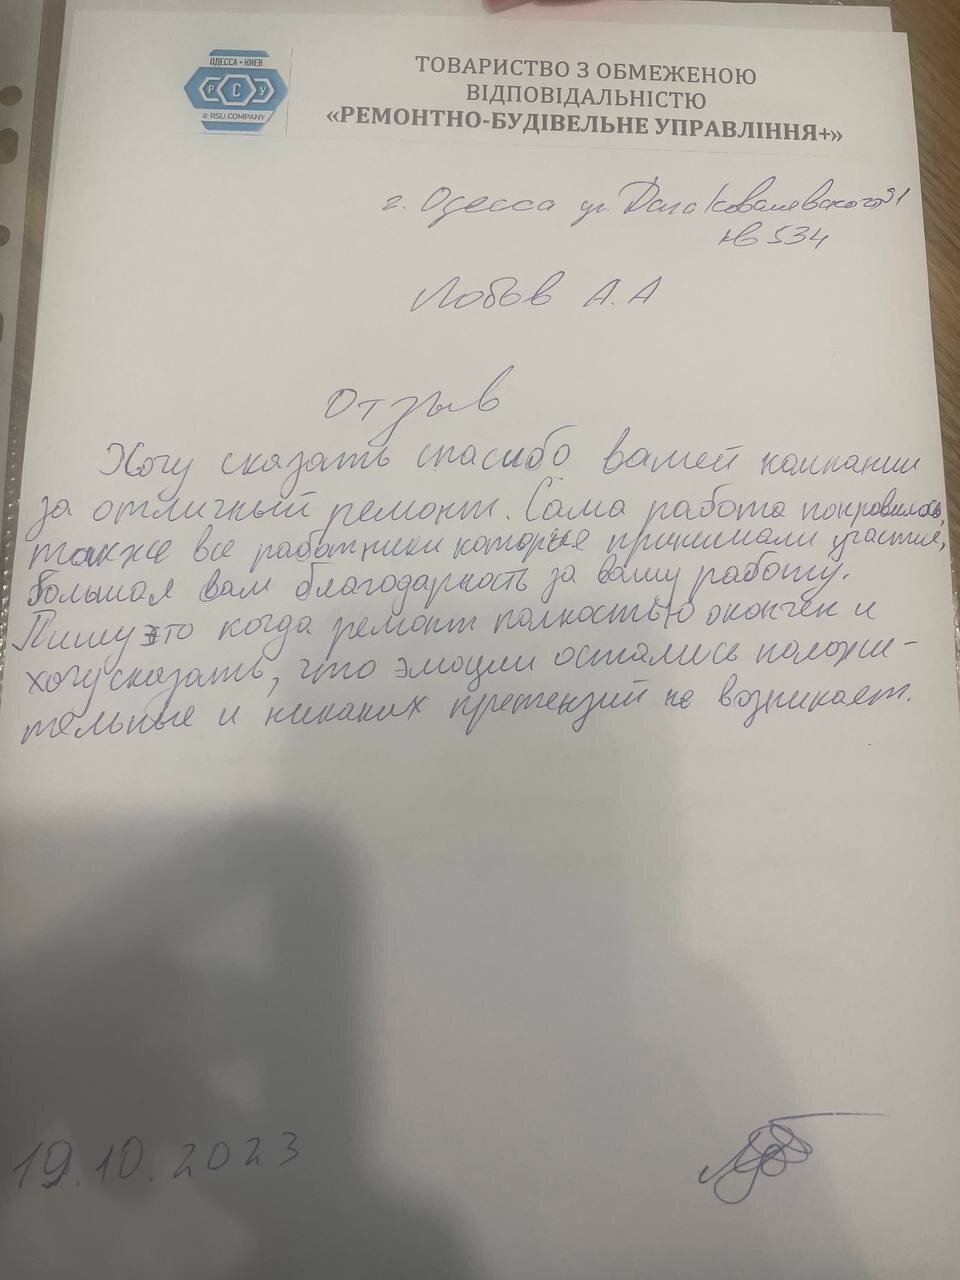 ОДЕССА • КИЕВ
РСУ
© RSU.COMPANY
ТОВАРИСТВО З ОБМЕЖЕНОЮ
ВІДПОВІДАЛЬНІСТЮ
«РЕМОНТНО-БУДІВЕЛЬНЕ УПРАВЛІННЯ+»
г. Одесса ул. Дача Ковалевского 91
кв 534
Лобов А.А
Отзыв
Хочу сказать спасибо вашей компании
за отличный ремонт. Сама работа понравилась,
также все работники которые принимали участие,
большая вам благодарность за вашу работу.
Пишу это когда ремонт полностью окончен и
хочу сказать, что эмоции остались положи-
тельные и никаких претензий не возникает.
19.10.2023